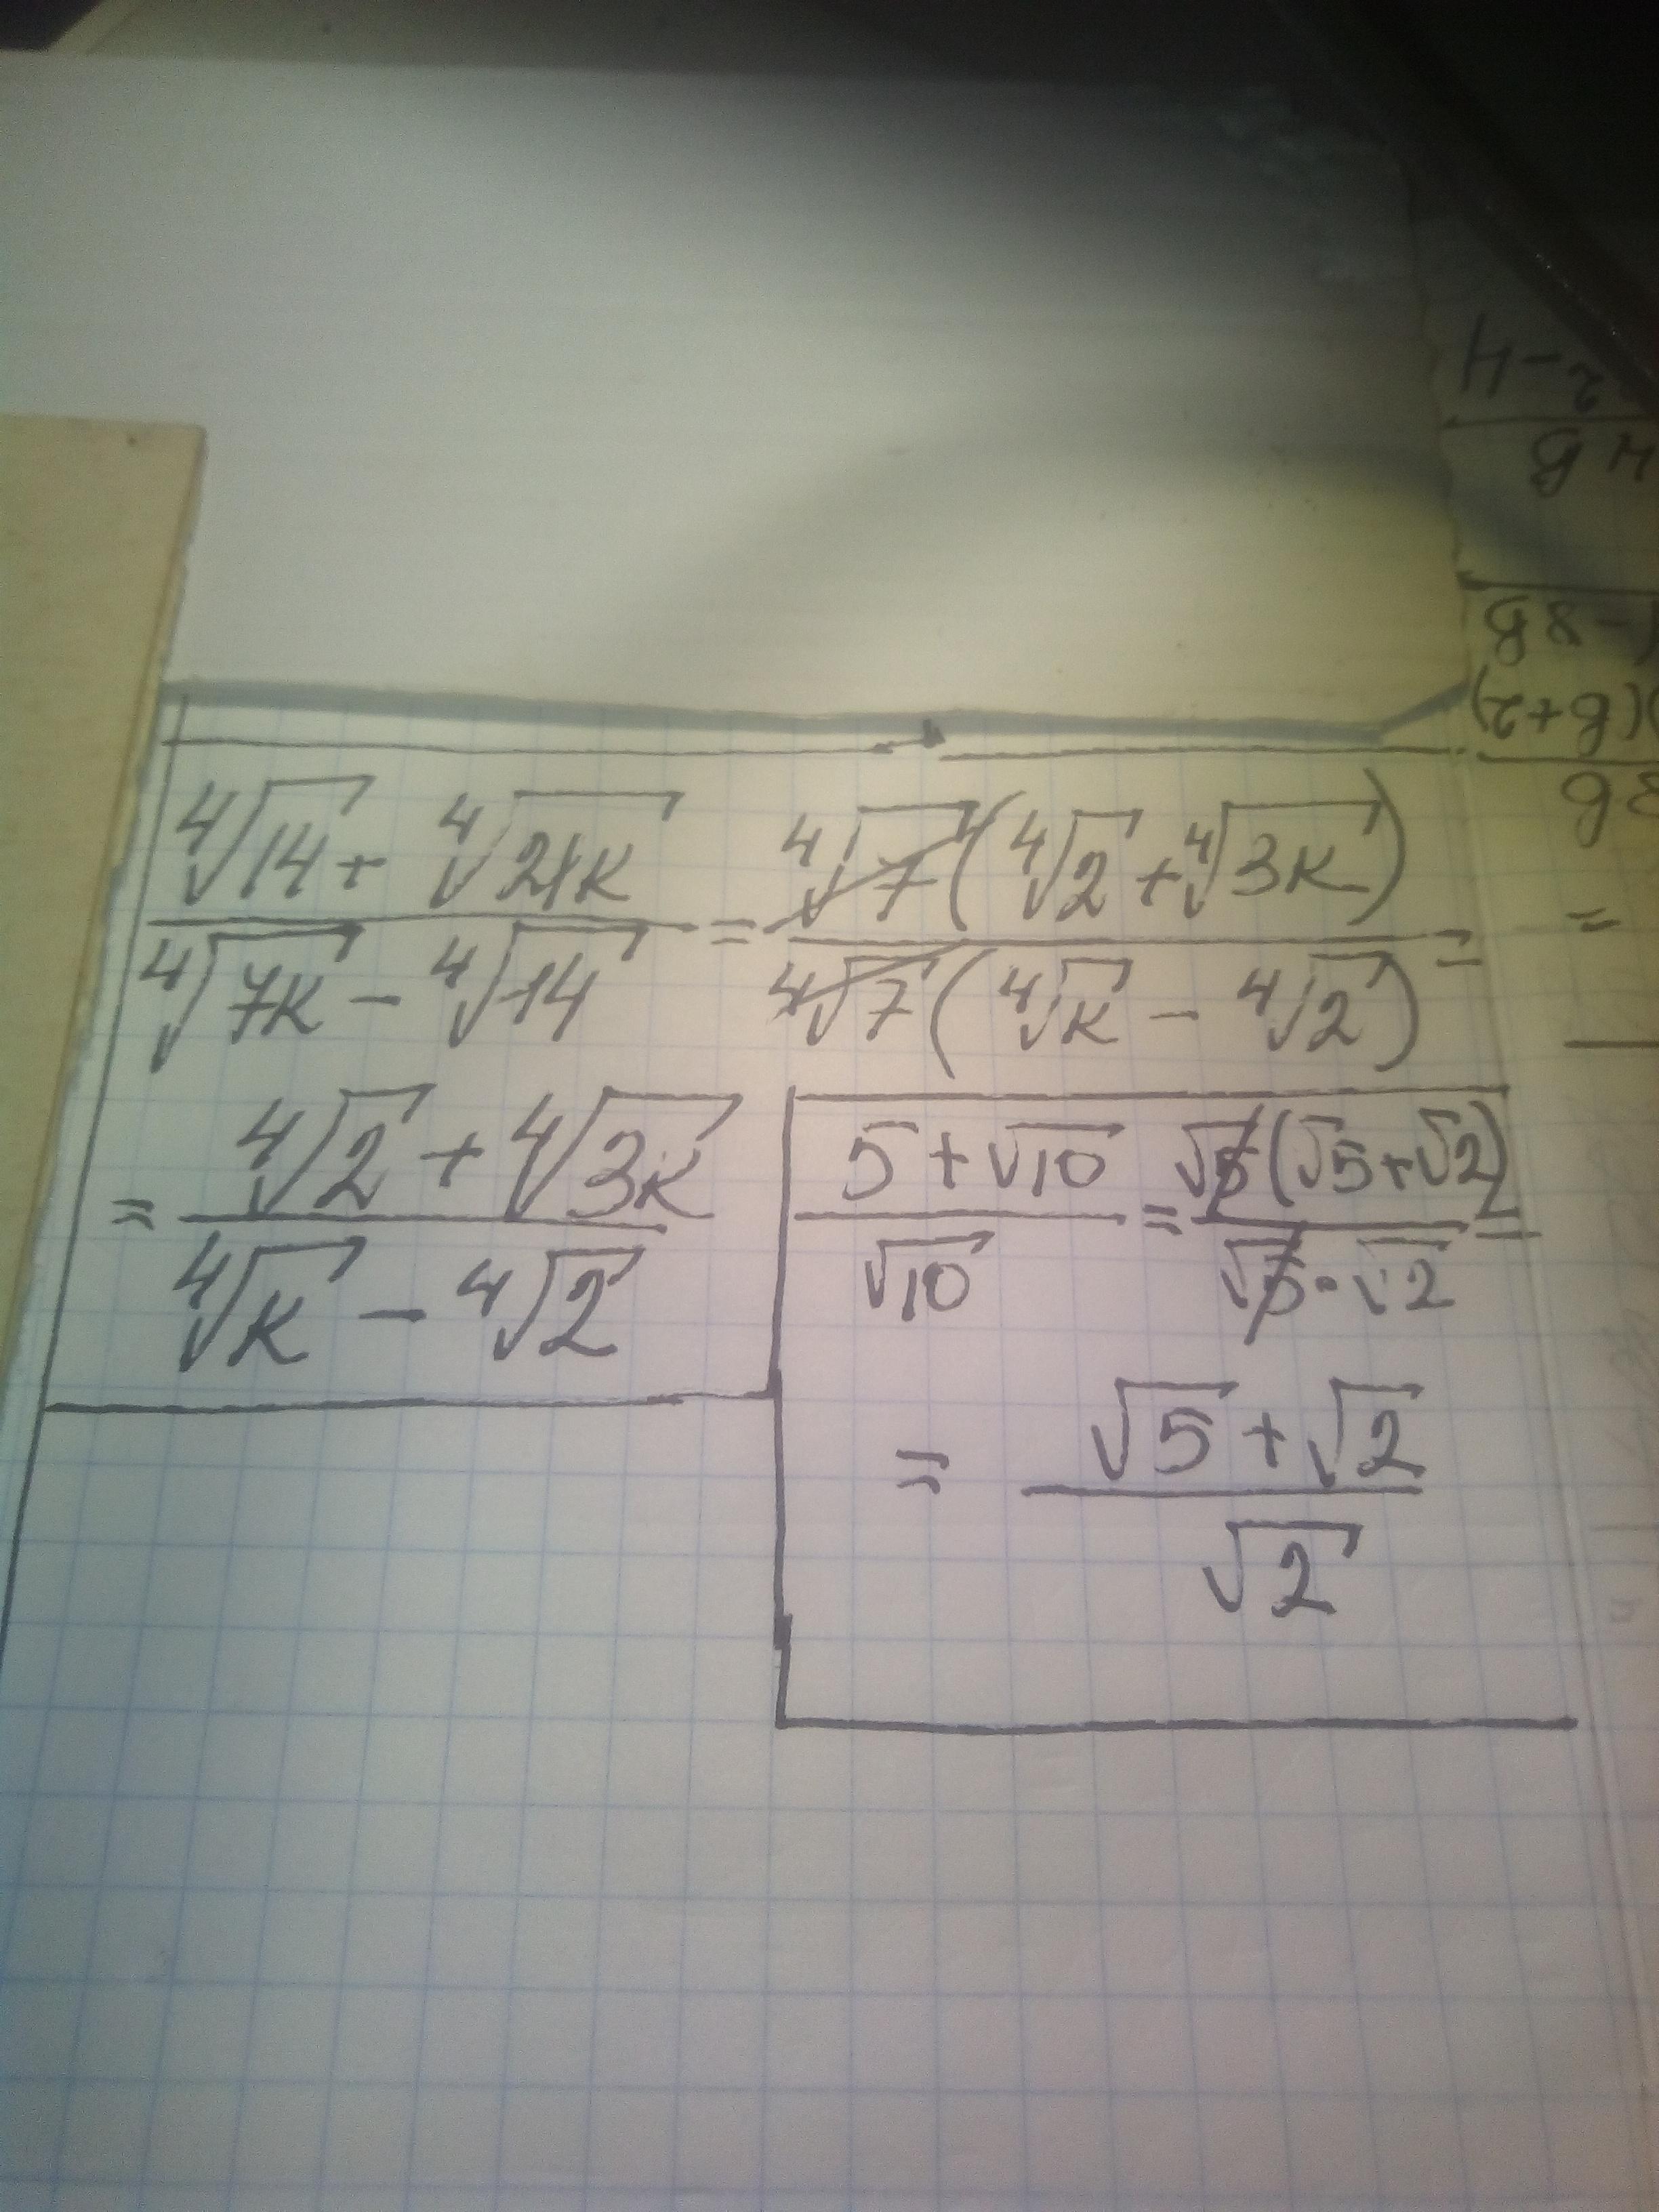 ⁴√14 + ⁴√21к / ⁴√7к − ⁴√14 = ⁴√7(⁴√2 + ⁴√3к) / ⁴√7(⁴√к − ⁴√2) =
= ⁴√2 + ⁴√3к / ⁴√к − ⁴√2
5 + √10 / √10 = √5(√5+√2) / √5 · √2 =
= √5 + √2 / √2